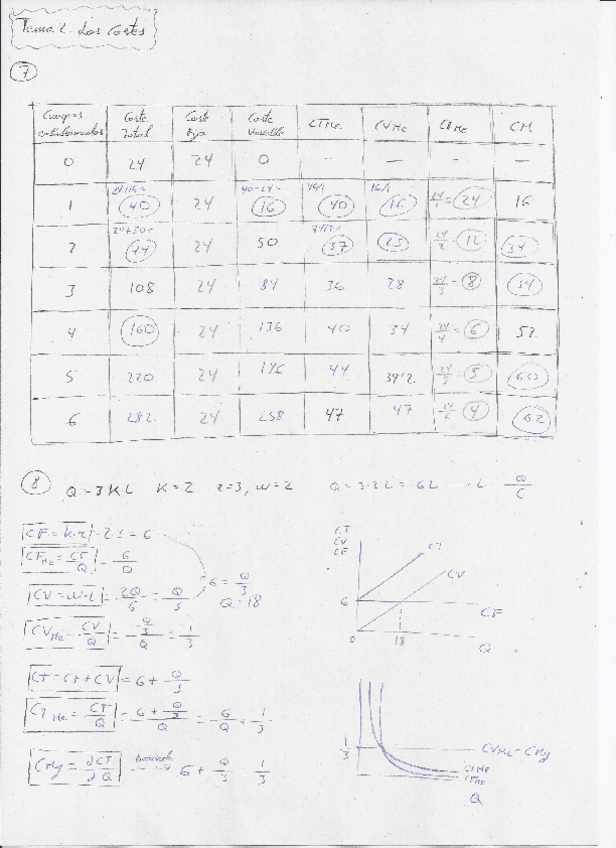 Tema 2 - Los Costes
7
Coste Total Coste Fijo Coste Variable CTMe. CVMe CFMe CM.
0 24 24 0 — — — —
24+16= 40-24= 40/1 16/1
1 40 24 16 40 16 24/1 = 24 16
24+50= 74/2=
2 74 24 50 37 25 24/2 = 12 34
3 108 24 84 36 28 24/3 = 8 34
4 160 24 136 40 34 24/4 = 6 52
5 220 24 196 44 39'2 24/5 = 5 60
6 282 24 258 47 47 24/6 4 62
8 Q = 3KL K = 2 r = 3, w = 2 Q = 3·2L = 6L L Q/6
CF = K·r = 2·3 = 6
CFMe = CF/Q = 6/Q
CV = w·L = 2Q/6 = Q/3
6 = Q/3
Q = 18
CVMe = CV/Q = Q/3/Q = 1/3
CT = CF + CV = 6 + Q/3
CTMe = CT/Q = 6 + Q/3/Q = 6/Q + 1/3
CMg = ∂CT/∂Q 6 + Q/3 1/3
CT
CV
CF
CT
CV
6 CF
0 18 Q
1/3 CVMe = CMg
CTMe
CFMe
Q